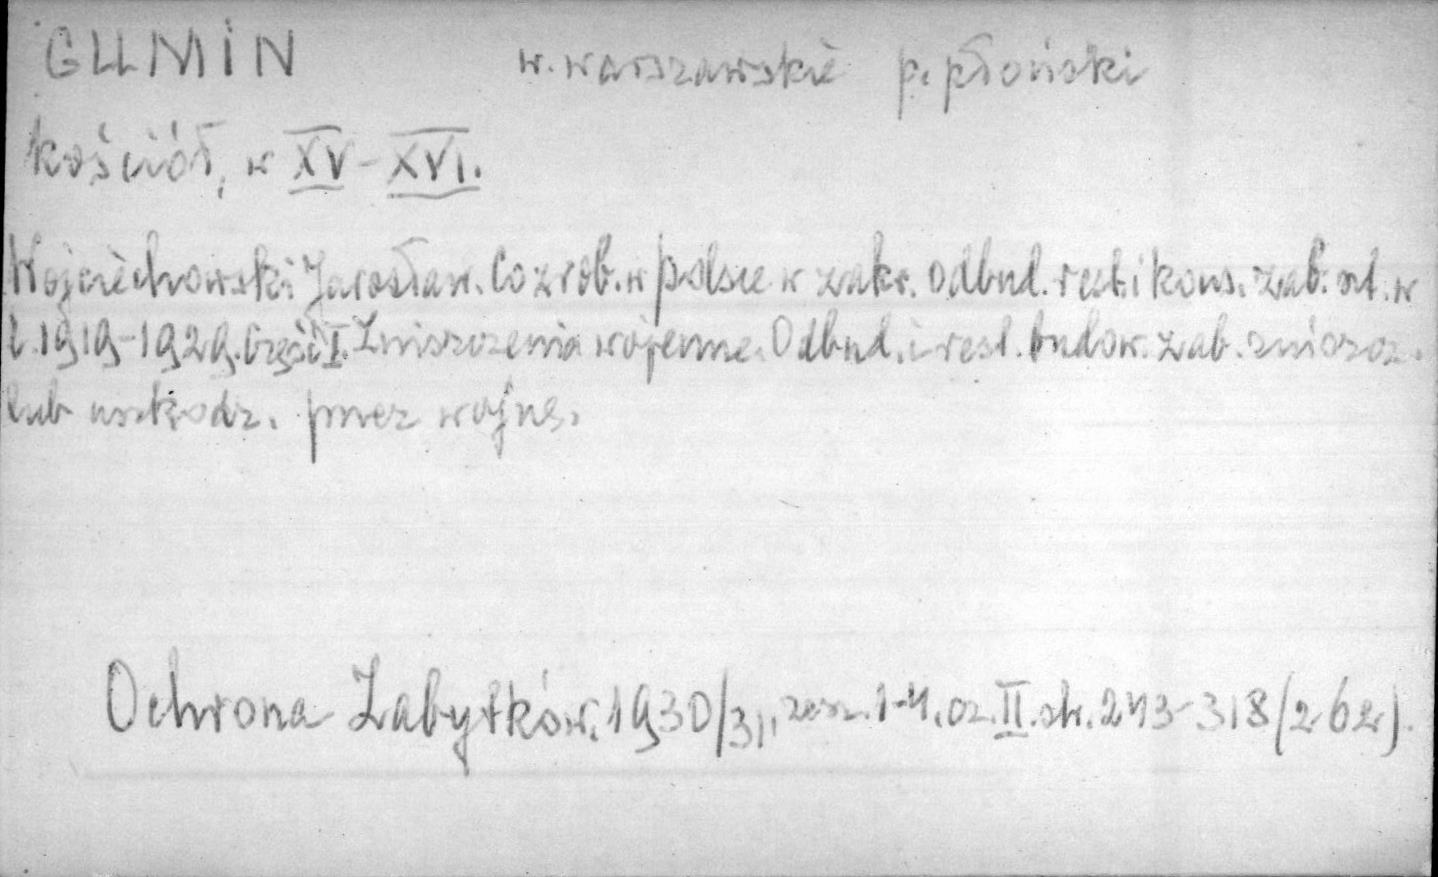 GUMIN w. warszawskie p. płoński
kościół, w XV-XVI.
Wojciechowski Jarosław. Co zrob. w Polsce w zakr. odbud. rest. i kons. zab. szt. w
l. 1919-1929. Część I. Zniszczenia wojenne. Odbud. i rest. budow. zab. zniszcz.
lub uszkodz. przez wojnę.
Ochrona Zabytków. 1930/31, zesz. 1-4. cz. II. str. 243-318 (262).